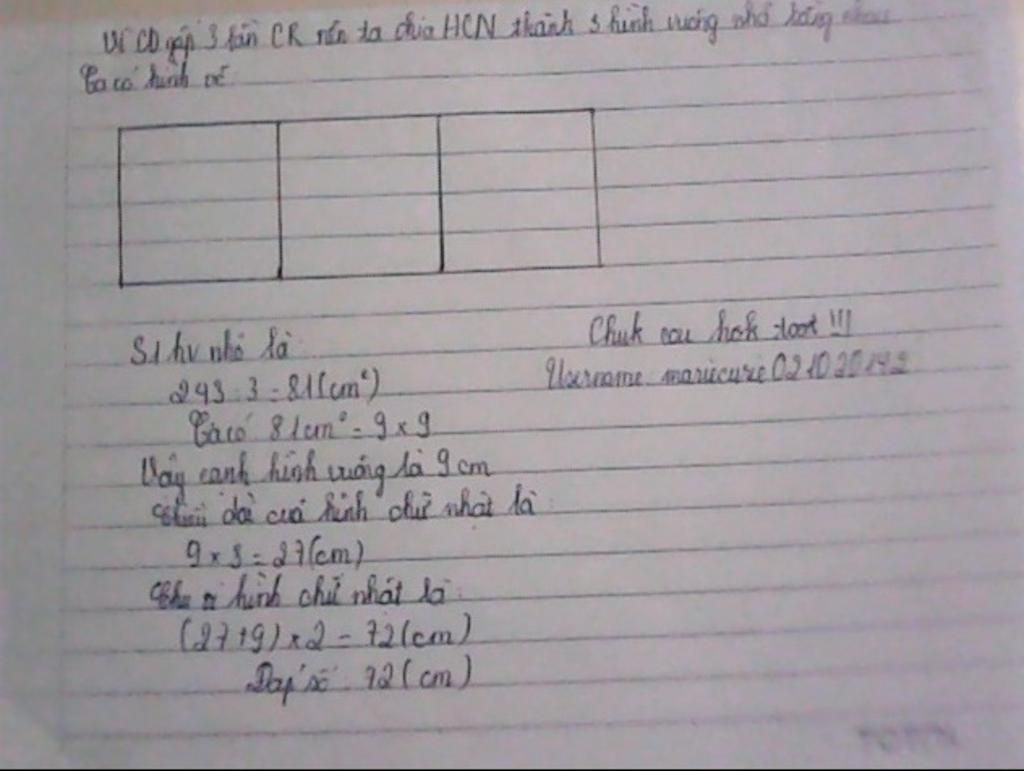 Vì CD gấp 3 lần CR nên ta chia HCN thành 3 hình vuông nhỏ bằng nhau
Ta có hình vẽ
S1 hv nhỏ là:
243 : 3 = 81 (cm²)
Ta có 81cm² = 9 x 9
Vậy cạnh hình vuông là 9 cm
Chiều dài của hình chữ nhật là:
9 x 3 = 27 (cm)
Chu vi hình chữ nhật là:
(27 + 9) x 2 = 72 (cm)
Đáp số: 72 (cm)
Chuk cau hok :toot !!!
Username: mariecurie